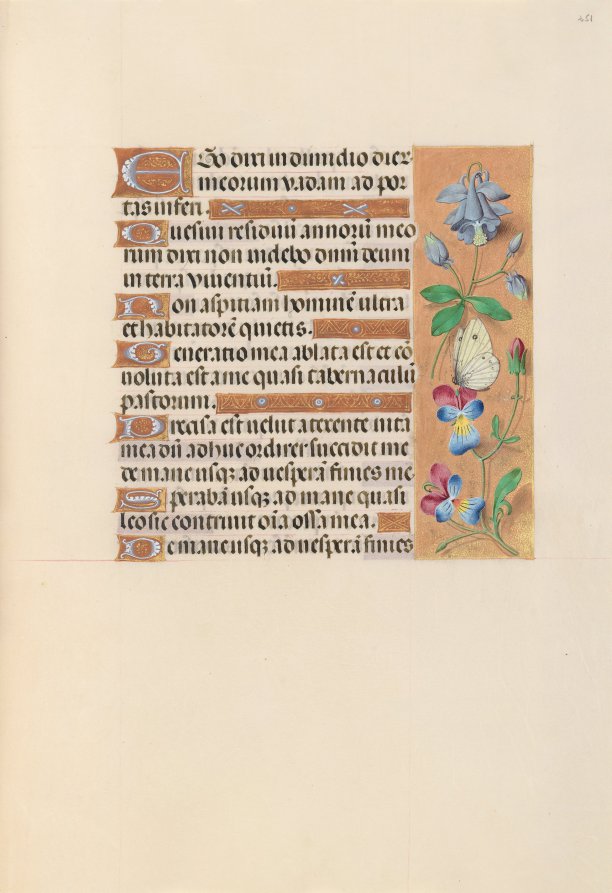 251
EGo dixi in dimidio dier̄
meorum vadam ad por
tas inferi.
Quesiui residuū annorū meo
rum dixi non uidebo dnm̄ deum
in terra viuentiū.
Non aspitiam hominē ultra
et habitatorē quietis.
Generatio mea ablata est et cō
uoluta est a me quasi tabernaculū
pastorum.
Precisa est uelut a texente uita
mea dū adhuc ordirer succidit me
de mane usq; ad uesperā finies me
Sperabā usq; ad mane quasi
leo sic contriuit oīa ossa mea.
De mane usq; ad uesperā finies